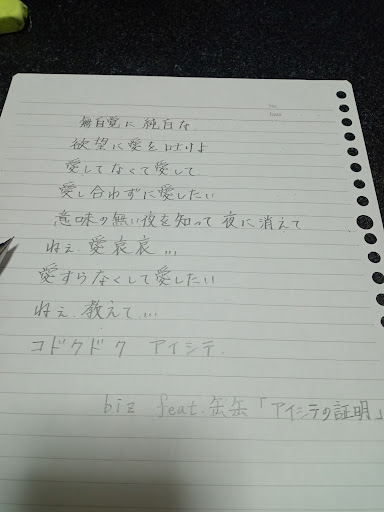 無自覚に 純白な
欲望に愛を叶けりよ
愛してなくて愛して
愛し合わずに愛したい
意味の無い夜を知って 夜に消えて
ねぇ 愛哀哀...
愛すらなくして愛したい
ねぇ 教えて...
コドクドク アイシテ.
biz feat.缶缶「アイシテの証明」
No.
Date